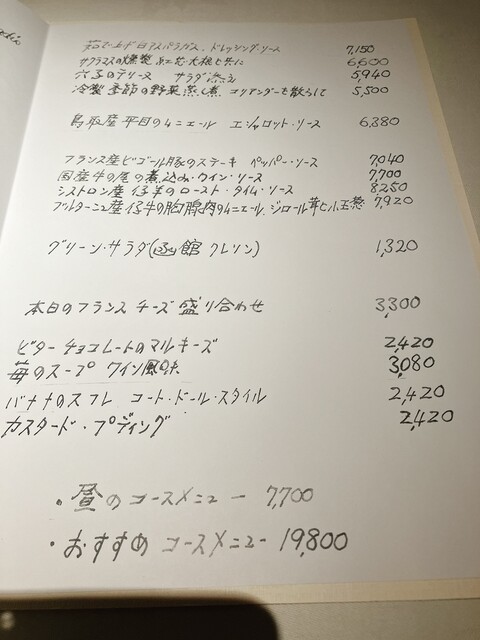 茹で上げ白アスパラガス、ドレッシング・ソース 7,150
サクラマスの燻製 紅芯大根と共に 6,600
穴子のテリーヌ サラダ添え 5,940
冷製 季節の野菜蒸し煮 コリアンダーを散らして 5,500
鳥取産平目のムニエル エシャロット・ソース 6,380
フランス産ビゴール豚のステーキ ペッパー・ソース 7,040
国産牛の尾の煮込み・ワイン・ソース 7,700
シストロン産 仔羊のロースト・タイム・ソース 8250
ブルターニュ産仔牛の胸腺肉のムニエル、ジロール茸と小玉葱 7,920
グリーン・サラダ(函館 クレソン) 1,320
本日のフランス チーズ 盛り合わせ 3,300
ビター チョコレートのマルキーズ 2,420
苺のスープ ワイン風味 3,080
バナナのスフレ コート・ドール・スタイル 2,420
カスタード・プディング 2,420
・昼のコースメニュー 7,700
・おすすめ コースメニュー 19,800